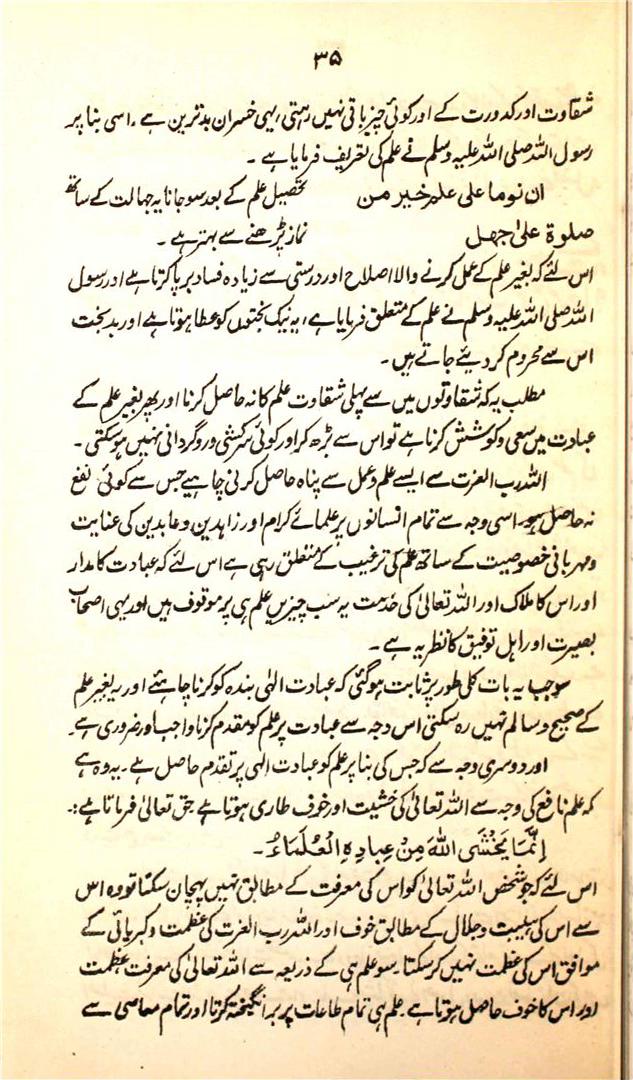 ۳۵
شقاوت اور کدورت کے اور کوئی چیز باقی نہیں رہتی، یہی خسران بدترین ہے ۔ اسی بنا پر
رسول اللہ صلی اللہ علیہ وسلم نے علم کی تعریف فرمایا ہے ۔
ان نوما علی علم خیر من تحصیل علم کے بعد سو جانا یہ جہالت کے ساتھ
صلوۃ علیٰ جھل نماز پڑھنے سے بہتر ہے ۔
اس لئے کہ بغیر علم کے عمل کرنے والا اصلاح اور درستی سے زیادہ فساد برپا کرتا ہے اور رسول
اللہ صلی اللہ علیہ وسلم نے علم کے متعلق فرمایا ہے، یہ نیک بختوں کو عطا ہوتا ہے اور بدبخت
اس سے محروم کر دیئے جاتے ہیں ۔
مطلب یہ کہ شقاوتوں میں سے پہلی شقاوت علم کا نہ حاصل کرنا اور پھر بغیر علم کے
عبادت میں سعی و کوشش کرنا ہے تو اس سے بڑھ کر اور کوئی سرکشی و روگردانی نہیں ہو سکتی ۔
اللہ رب العزت سے ایسے علم و عمل سے پناہ حاصل کرنی چاہیے جس سے کوئی نفع
نہ حاصل ہو، اسی وجہ سے تمام انسانوں پر علمائے کرام اور زاہدین و عابدین کی عنایت
و مہربانی خصوصیت کے ساتھ علم کی ترغیب کے متعلق رہی ہے اس لئے کہ عبادت کا مدار
اور اس کا ملاک اور اللہ تعالیٰ کی خدمت یہ سب چیزیں علم ہی پر موقوف ہیں اور یہی اصحاب
بصیرت اور اہل توفیق کا نظریہ ہے ۔
سو جب یہ بات کلی طور پر ثابت ہو گئی کہ عبادت الٰہی بندہ کو کرنا چاہئے اور یہ بغیر علم
کے صحیح و سالم نہیں رہ سکتی اس وجہ سے عبادت پر علم کو مقدم کرنا واجب اور ضروری ہے۔
اور دوسری وجہ سے کہ جس کی بنا پر علم کو عبادت الٰہی پر تقدم حاصل ہے ۔ یہ وہ ہے
کہ علم نافع کی وجہ سے اللہ تعالیٰ کی خشیت اور خوف طاری ہوتا ہے حق تعالیٰ فرماتا ہے :۔
اِنَّمَا يَخْشَى اللّٰهَ مِنْ عِبَادِهِ الْعُلَمَاءُ ۔
اس لئے کہ جو شخص اللہ تعالیٰ کو اس کی معرفت کے مطابق نہیں پہچان سکتا تو وہ اس
سے اس کی ہیبت و جلال کے مطابق خوف اور اللہ رب العزت کی عظمت و کبریائی کے
موافق اس کی عظمت نہیں کر سکتا۔ سو علم ہی کے ذریعہ سے اللہ تعالیٰ کی معرفت عظمت
اور اس کا خوف حاصل ہوتا ہے ۔ علم ہی تمام طاعات پر برانگیختہ کرتا اور تمام معاصی سے